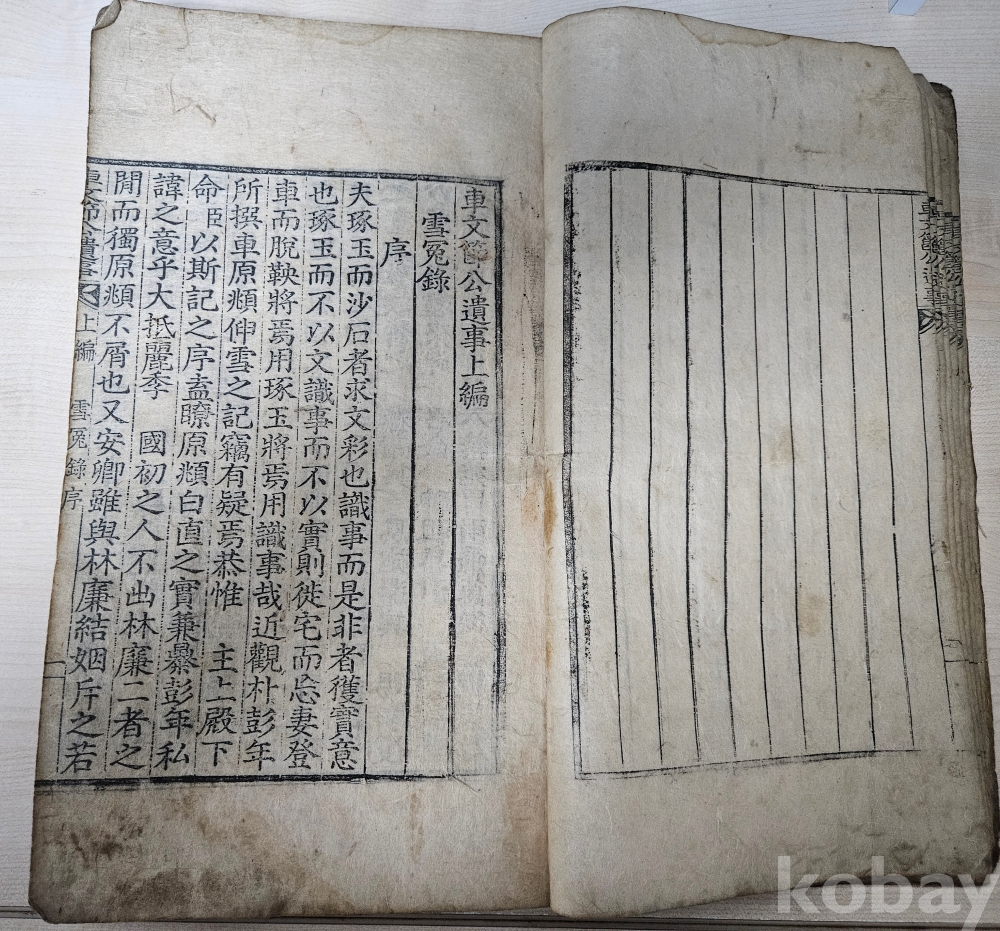 車文節公遺事
車文節公遺事上編
雪冤錄
序
夫琢玉而沙石者求文彩也識事而是非者獲實意
也琢玉而不以文識事而不以實則徙宅而忘妻登
車而脫鞅將焉用琢玉將焉用識事哉近觀朴彭年
所撰車原頫伸雪之記竊有疑焉恭惟 主上殿下
命臣以斯記之序盍瞭原頫白直之實兼纂彭年私
諱之意乎大抵麗季 國初之人不出林廉二者之
間而獨原頫不屑也又安卿雖與林廉結姻斥之若
車文節公遺事 上編 雪冤錄序 一
kobay